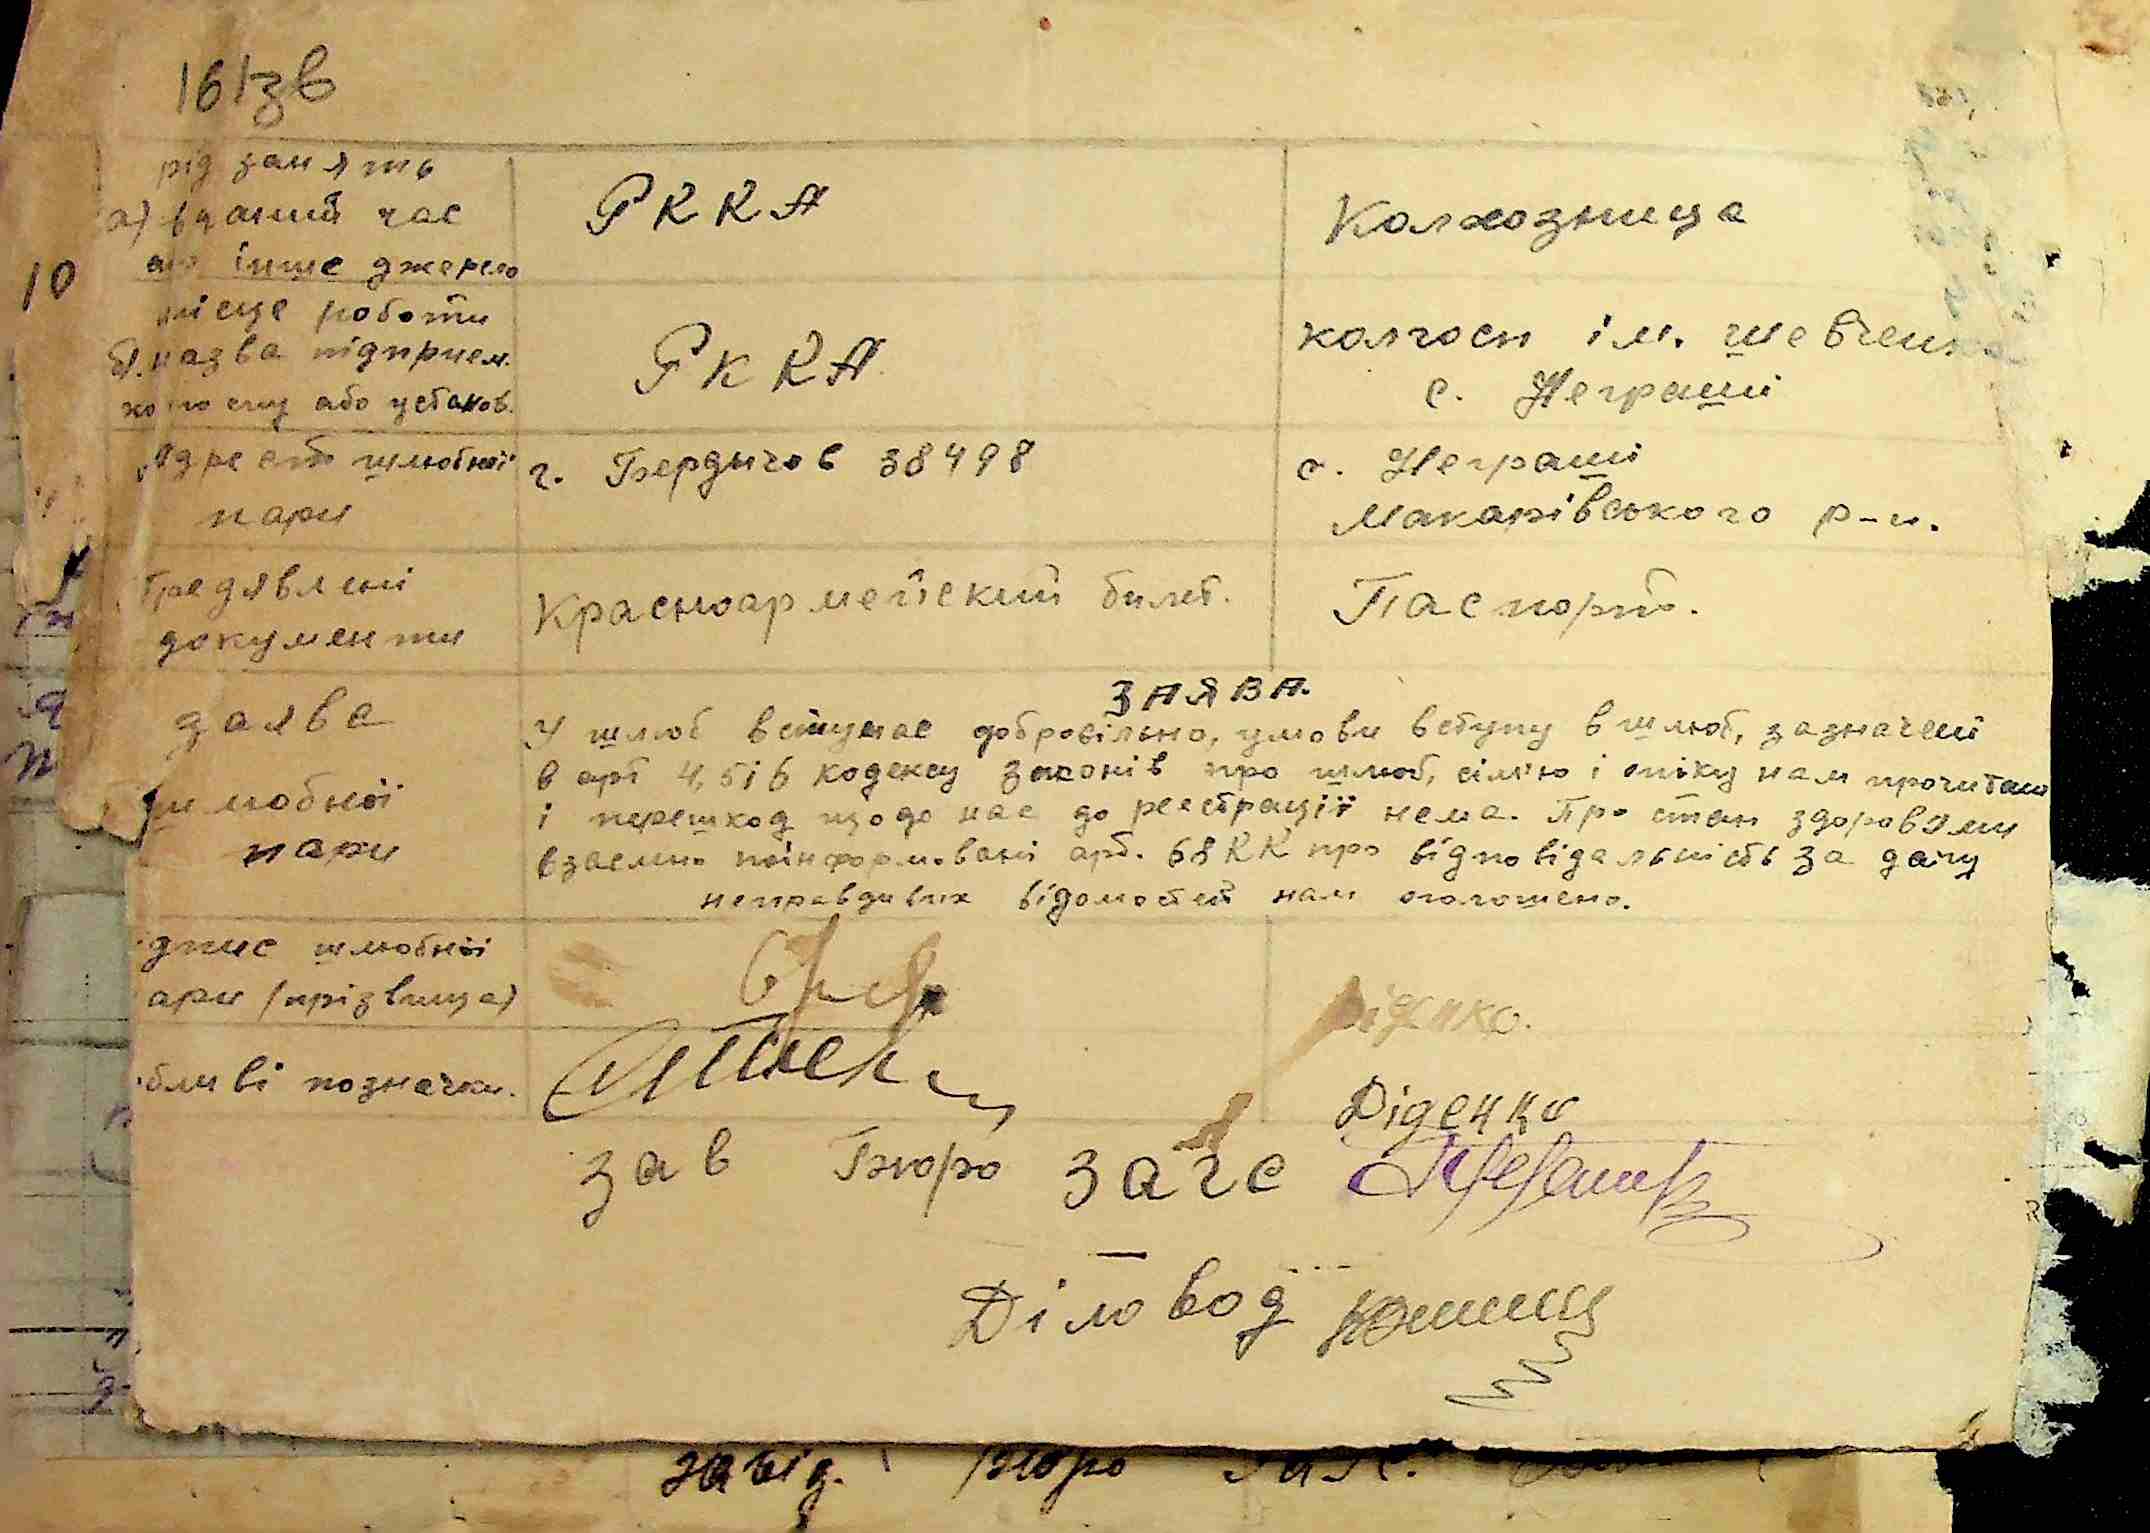 161зв
рід занять
а) в даний час
або інше джерело
10
РККА
Колхозница
місце роботи
б) назва підприєм.
колгоспу або установ.
РККА
колгосп ім. Шевченк
с. Неграші
Адрест шлюбної
пари
г. Бердычов 38498
с. Неграші
Макарівського р-н.
Предявлені
документи
Красноармейский билет.
Паспорт.
Заява
шлюбної
пари
ЗАЯВА.
У шлюб вступає добровільно, умови вступу в шлюб, зазначені
в арт 4, 5 і 6 кодексу законів про шлюб, сім'ю і опіку нам прочитані
і перешкод щодо нас до реєстрації нема. Про стан здоров'я ми
взаємно поінформовані арт. 68 КК про відповідальність за дачу
неправдивих відомостей нам оголошено.
дпис шлюбної
ари (прізвища)
Діденко.
бливі позначки.
Діденко
Зав Бюро Загс
Діловод
Завід. Бюро